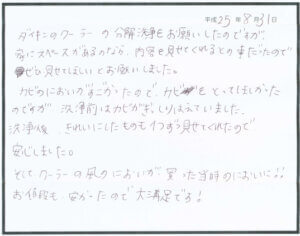 平成25年8月31日
ダイキンのクーラーの分解洗浄をお願いしたのですが
家にスペースがあるのなら、内容を見せてくれるとの事だったので
ぜひ見せてほしいとお願いしました。
カビのにおいがすごかったので、カビをとってほしかった
のですが 洗浄前はカビがぎっしりはえていました。
洗浄後、きれいにしたものも1つずつ見せてくれたので
安心しました。
そしてクーラーの風のにおいが買った当時のにおいに!!
お値段も安かったので大満足です!